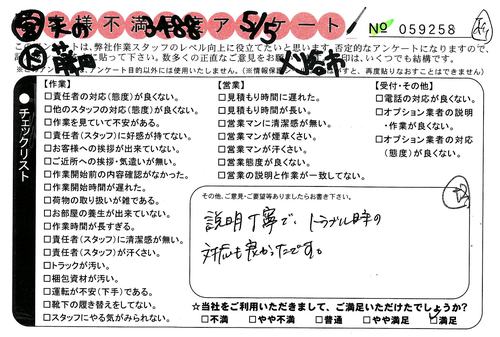 お客様不満足度アンケート
№ 059258
このアンケートは、弊社作業スタッフのレベル向上に役立てたいと思います。否定的なアンケートになりますので、
に貼って下さい。多数くの正直なご意見をお願い
印は、いくつでも結構です。
アンケート目的以外には使用いたしません。
と、再度貼りなおすことはできません
チェックリスト
【作業】
□責任者の対応(態度)が良くない。
□他のスタッフの対応(態度)が良くない。
□作業を見ていて不安がある。
□責任者(スタッフ)に好感が持てない。
□お客様への挨拶が出来ていない。
□ご近所への挨拶・気遣いが無い。
□作業開始前の内容確認がなかった。
□作業開始時間が遅れた。
□荷物の取り扱いが雑である。
□お部屋の養生が出来ていない。
□作業時間が長すぎる。
□責任者(スタッフ)に清潔感が無い。
□責任者(スタッフ)が汗くさい。
□トラックが汚い。
□梱包資材が汚い。
□運転が不安(下手)である。
□靴下の履き替えをしてない。
□スタッフにやる気がみられない。
【営業】
□見積もり時間に遅れた。
□見積もり時間が長い。
□営業マンに清潔感が無い。
□営業マンが煙草くさい。
□営業マンが汗くさい。
□営業態度が良くない。
□営業の説明と作業が一致してない。
【受付・その他】
□電話の対応が良くない。
□オプション業者の説明
・作業が良くない。
□オプション業者の対応
(態度)が良くない。
その他、ご意見・ご要望等ありましたらお書き下さい。
説明丁寧で、トラブル時の
対応も良かったです。
☆当社をご利用いただきまして、ご満足いただけたでしょうか?
□不満 □やや不満 □普通 □やや満足 □満足